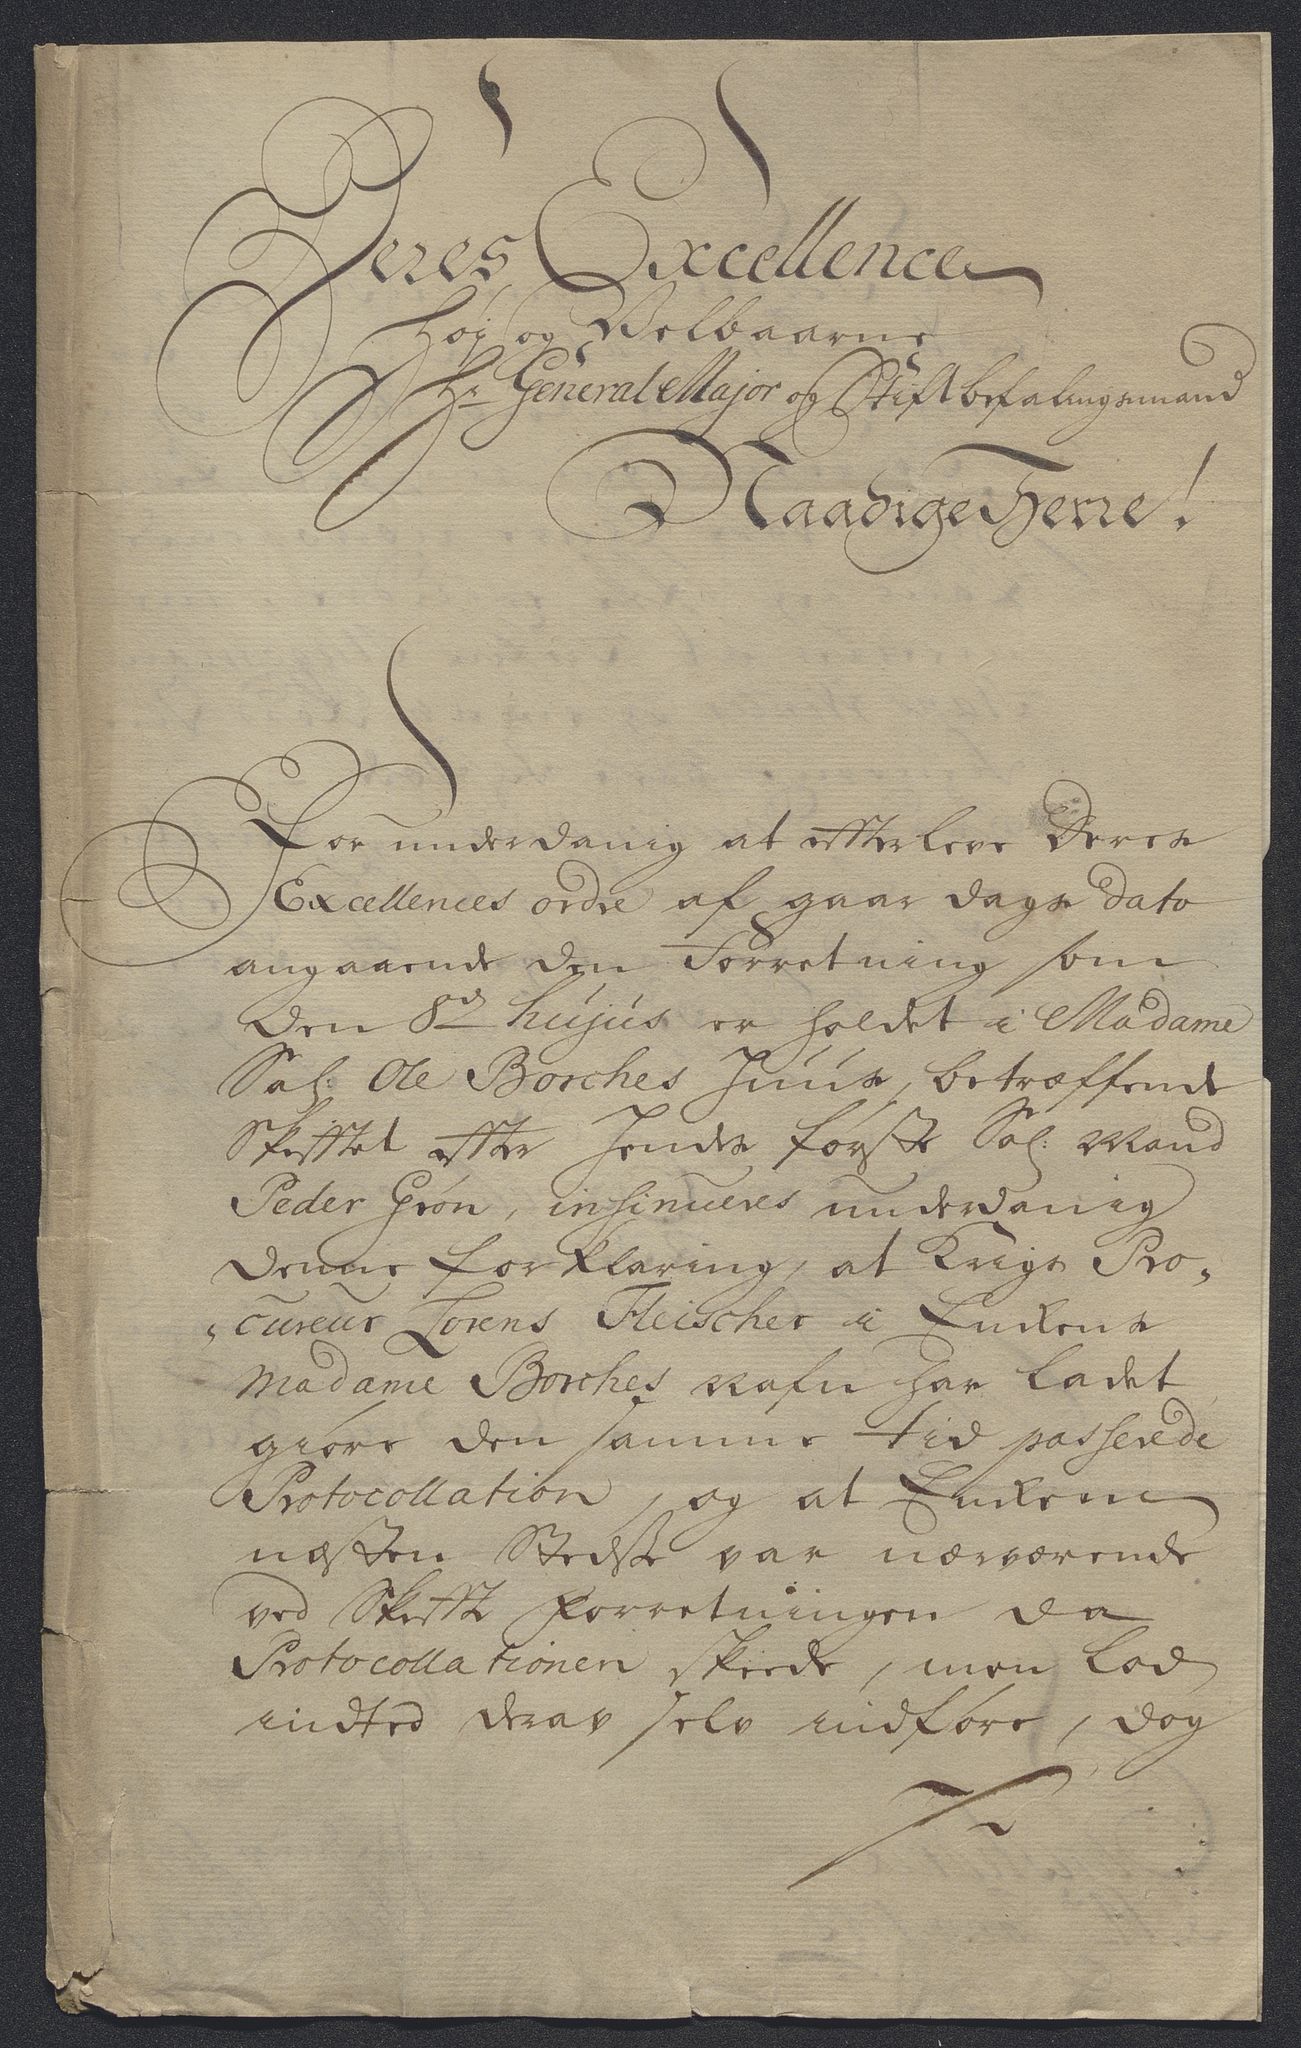 Deres Excellence
Høj og Velbaarne
Hr General Major og Stiftbefalingsmand
Naadige Herre!
For underdanig at efterleve Deres
Excellences ordre af gaar dags dato
angaaende den Forretning som
den 8de hujus er holdet i Madame
Sal: Ole Borches Huus, betræffende
Skifftet effter hendes første Sal: Mand
Peder Grøn, insinueres underdanig
denne forklaring, at Krigs Pro-
-cureur Lorens Fleischer i Enkens
Madame Borches Nafn har ladet
giøre den samme tid passerede
Protocollation, og at Enkem
næsten stedse var nærværende
ved Skiffte Forretningen da
Protocollationen skeede, men lod
indted derav selv indføre, dog